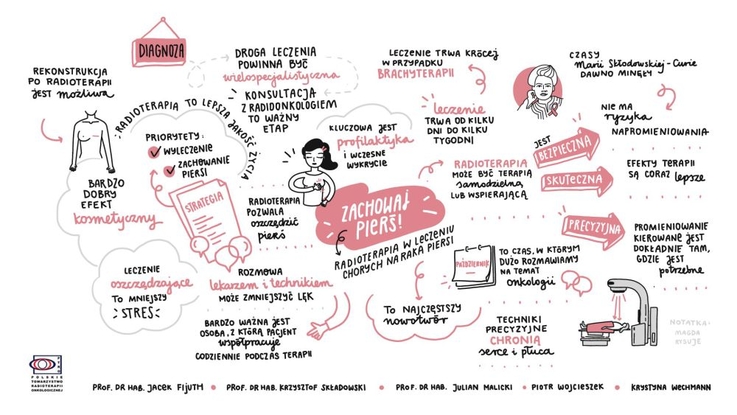 DIAGNOZA
REKONSTRUKCJA
PO RADIOTERAPII
JEST możliwa
RADIOTERAPIA TO LEPSZA JAKOŚĆ ŻYCIA
PRIORYTETY:
WYLECZENIE
ZACHOWANIE
PIERSI
STRATEGIA
BARDZO
DOBRY
EFEKT
kosmetyczny
DROGA LECZENIA
POWINNA BYĆ
wielospecjalistyczna
KONSULTACJA
Z RADIONKOLOGIEM
TO WAŻNY
ETAP
KLUCZOWA JEST
profilaktyka
I WCZESNE
WYKRYCIE
RADIOTERAPIA
POZWALA
oszczędzić
pierś
ZACHOWAJ
PIERŚ!
RADIOTERAPIA W LECZENIU
CHORYCH NA RAKA PIERSI
LECZENIE TRWA KRÓCEJ
W PRZYPADKU
BRACHYTERAPII
leczenie
TRWA OD KILKU
DNI DO KILKU
TYGODNI
RADIOTERAPIA
MOŻE BYĆ TERAPIĄ
samodzielną
LUB WSPIERAJĄCĄ
CZASY
Marii Skłodowskiej-Curie
DAWNO MINĘŁY
JEST
BEZPIECZNA
NIE MA
ryzyka
NAPROMIENIOWANIA
SKUTECZNA
EFEKTY TERAPII
SĄ CORAZ lepsze
PRECYZYJNA
PROMIENIOWANIE
KIEROWANE JEST
DOKŁADNIE TAM,
GDZIE JEST
potrzebne
LECZENIE
oszczędzające
TO MNIEJSZY
STRES
ROZMOWA
z lekarzem i technikiem
MOŻE ZMNIEJSZYĆ LĘK
BARDZO WAŻNA JEST
OSOBA, Z KTÓRĄ PACJENT
współpracuje
CODZIENNIE PODCZAS TERAPII
TO NAJCZĘSTSZY
nowotwór
PAŹDZIERNIK
TO CZAS, W KTÓRYM
DUŻO ROZMAWIAMY
NA TEMAT
onkologii
TECHNIKI
PRECYZYJNE
CHRONIĄ
serce i płuca
NOTATKA:
MAGDA
RYSUJE
POLSKIE
TOWARZYSTWO
RADIOTERAPII
ONKOLOGICZNEJ
PROF. DR HAB. JACEK FIJUTH
PROF. DR HAB. KRZYSZTOF SKŁADOWSKI
PROF. DR HAB. JULIAN MALICKI
PIOTR WOJCIESZEK
KRYSTYNA WECHMANN